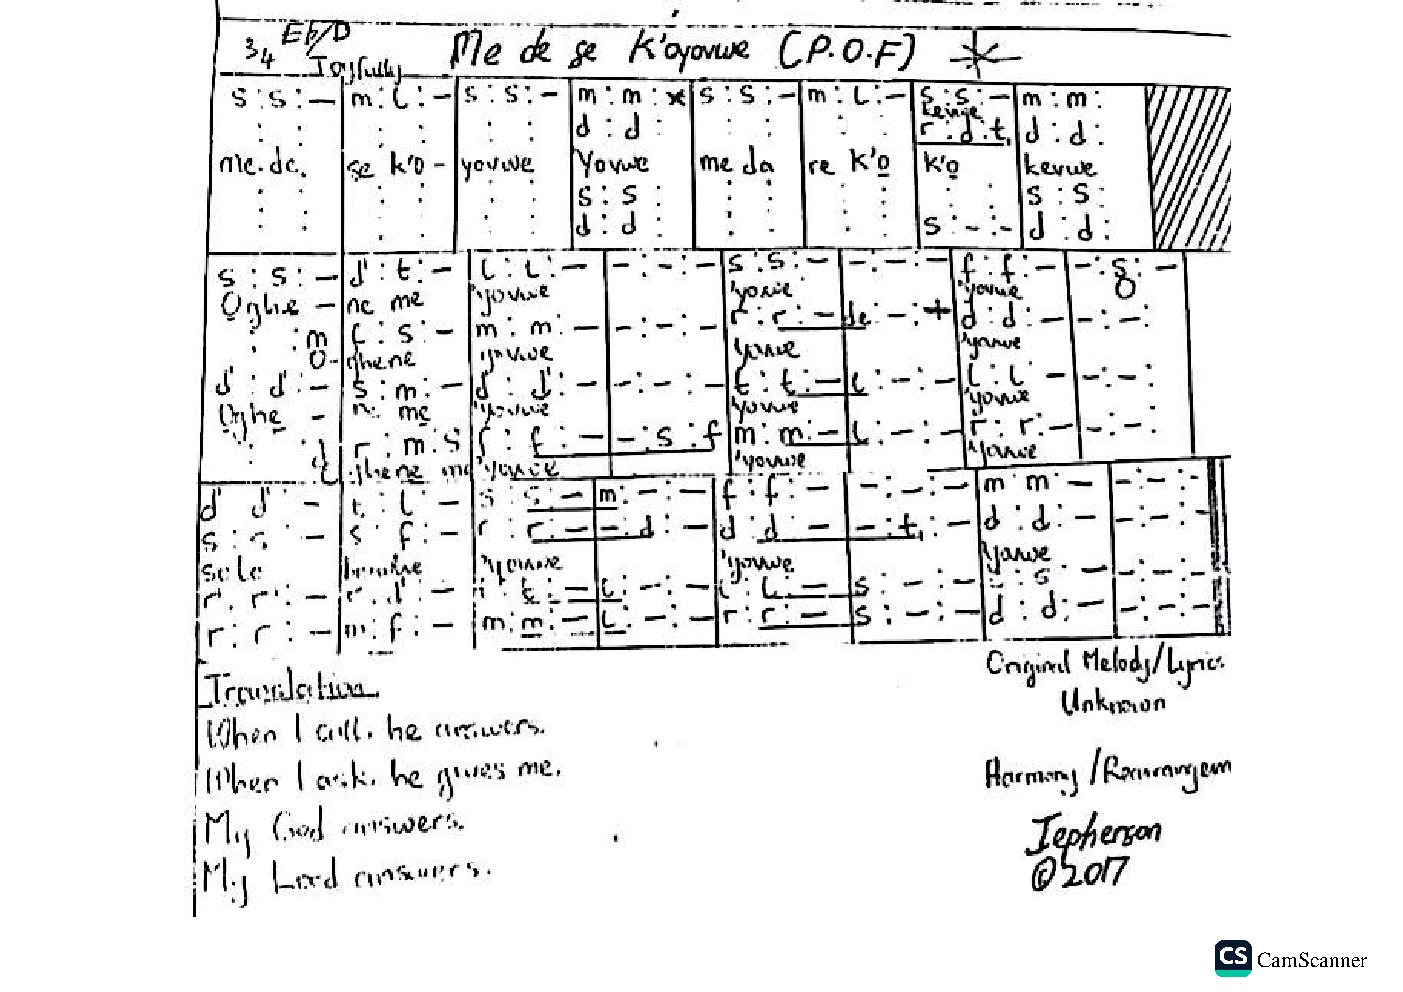 3/4 Eb/D Me de se K'oyovwe (P.O.F)
Joyfully
s : s : – | m : l : – | s : s : – | m : m : x | s : s : – | m : l : – | s : s : – | m : m :
kevwe
d : d : | r : d : t, | d : d :
me de se k'o – yovwe Yovwe me da re k'o k'o kevwe
s : s : | s : s :
d : d : | s : – : – | d : d :
s : s : – | d' : t : – | l : l : – | – : – : – | s : s : – | – : – : – | f : f : – | – : s : –
Oghe – ne me 'yovwe 'yovwe 'yovwe O
: : m | f : s : – | m : m : – | – : – : – | r : r : – | de : – : + | d : d : – | – : – :
O – ghene yovwe yovwe 'yovwe
d' : d' : – | s : m : – | d' : d' : – | – : – : – | t : t : – | l : – : – | l : l : – | – : – :
Oghe – ne me 'yovwe yovwe 'yovwe
d | r : m : s | f : f : – | – : s : f | m : m : – | l : – : – | r : r : – | – : – :
ghene me 'yovwe 'yovwe 'yovwe
d' d' – | t : l – | s : s : – | m : – : – | f : f : – | – : – : – | m : m : – | – : – : –
s : s : – | s : f : – | r : r : – | – : d : – | d : d – | – : t, : – | d : d : – | – : – : –
'yovwe 'yovwe 'yovwe
r' : r' : – | r' : d' : – | t : – | l : – : – | l : l : – | s : – : – | : s | – : – : –
r : r : – | m : f : – | m : m : – | l : – : – | r : r : – | s : – : – | d : d : – | – : – : –
Original Melody/Lyrics
Unknown
Translation
When I call, he answers.
When I ask, he gives me.
My God answers.
My Lord answers.
Harmony/Rearrangem
Jepherson
©2017
CS CamScanner